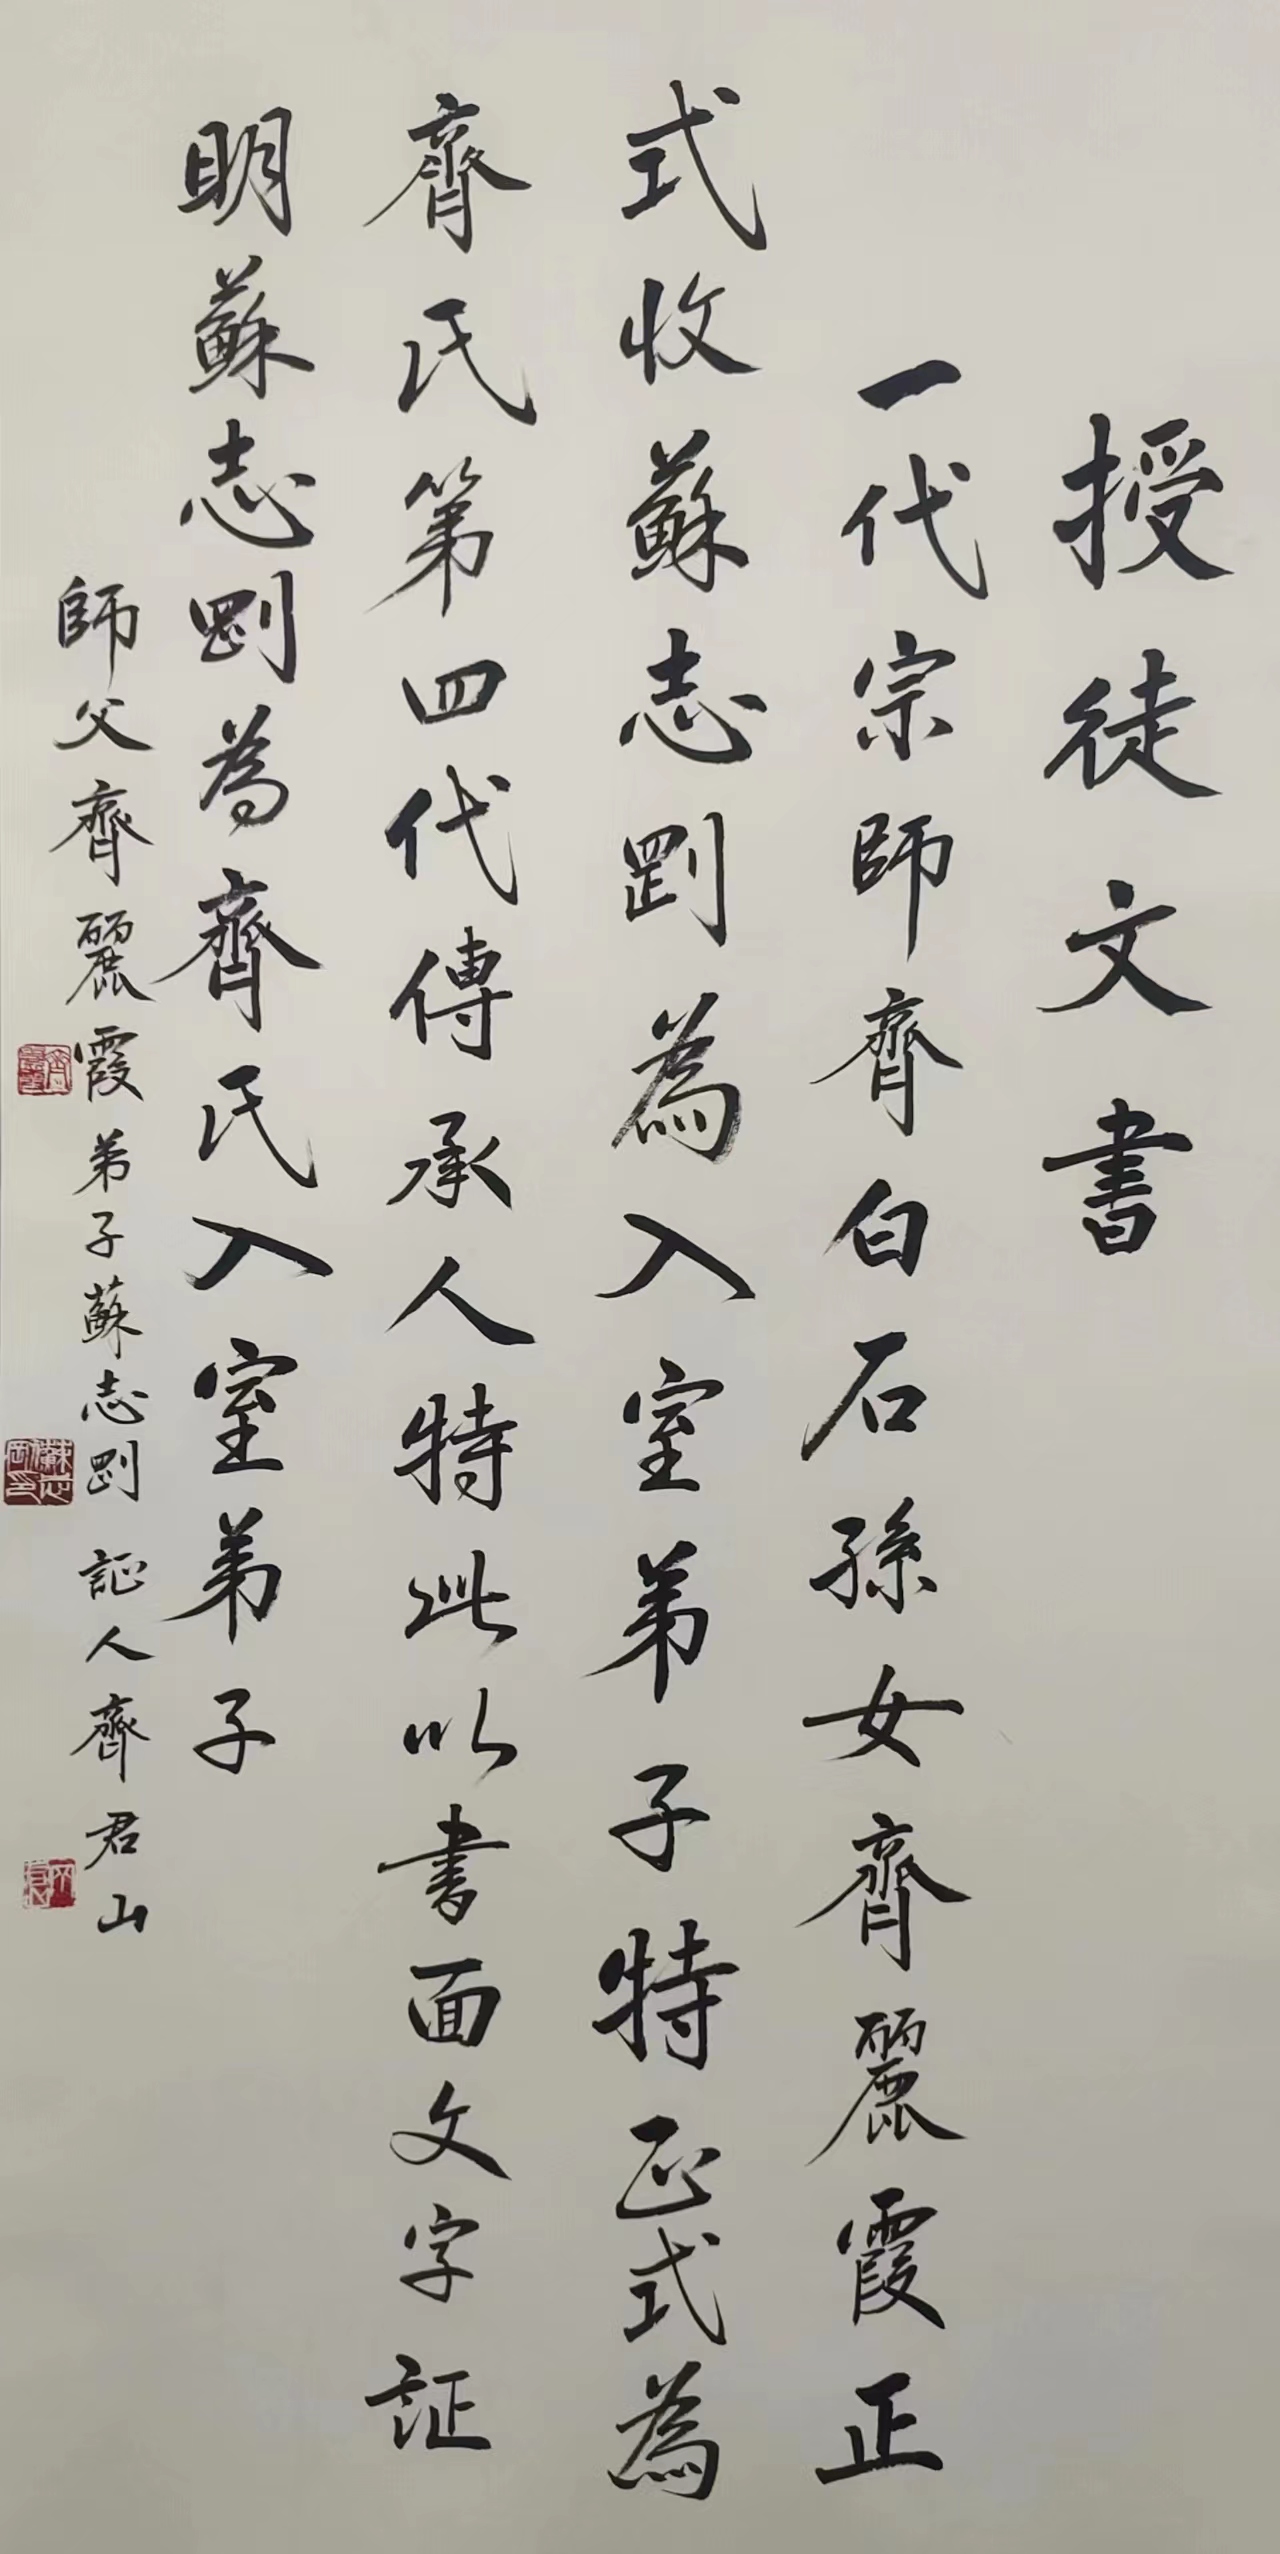 授徒文書
一代宗師齊白石孫女齊麗霞正
式收蘇志剛為入室弟子特正式為
齊氏第四代傳承人特此以書面文字証
明蘇志剛為齊氏入室弟子
師父齊麗霞 弟子蘇志剛 証人齊君山
蘇志剛印